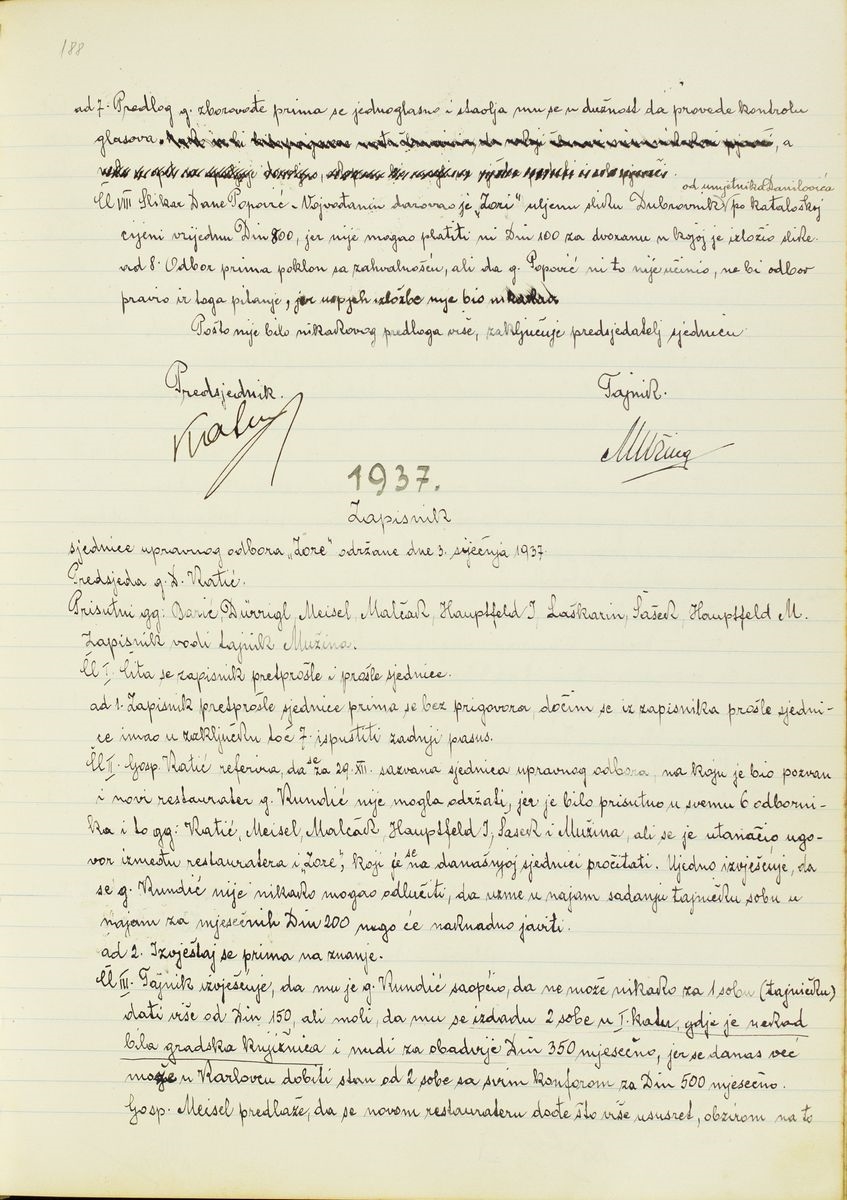 188
ad 7. Predlog g. zborovođe prima se jednoglasno i stavlja mu se u dužnost da provede kontrolu
glasova. , a
od umjetnika Danilovića
Čl VIII Slikar Dane Popović - Vojvođanin darovao je „Zori" uljenu sliku Dubrovnik (po kataloškoj
cijeni vrijednu Din 800, jer nije mogao platiti ni Din 100 za dvoranu u kojoj je izložio slike.
ad 8. Odbor prima poklon sa zahvalnošću, ali da g. Popović ni to nije učinio, ne bi odbor
pravio iz toga pitanje, jer uspjeh izložbe nije bio nikakav.
Pošto nije bilo nikakovog predloga više, zaključuje predsjedatelj sjednicu.
Predsjednik. Tajnik.
Katić Mužina
1937.
Zapisnik
sjednice upravnog odbora „Zore" održane dne 3. siječnja 1937.
Predsjeda g. D. Katić.
Prisutni gg: Barić, Dürrigl, Meisel, Malčak, Hauptfeld I, Laškarin, Šašek, Hauptfeld M.
Zapisnik vodi tajnik Mužina.
Čl I. Čita se zapisnik pretprošle i prošle sjednice.
ad 1. Zapisnik pretprošle sjednice prima se bez prigovora, dočim se iz zapisnika prošle sjedni-
ce imao u zaključku toč 7. ispustiti zadnji pasus.
Čl II. Gosp. Katić referira, da se za 29. XII. sazvana sjednica upravnog odbora, na koju je bio pozvan
i novi restaurater g. Kundić nije mogla održati, jer je bilo prisutno u svemu 6 odborni-
ka i to gg: Katić, Meisel, Malčak, Hauptfeld I, Šašek i Mužina, ali se je utanačio ugo-
vor između restauratera i „Zore", koji će se na današnjoj sjednici pročitati. Ujedno izvješćuje, da
se g. Kundić nije nikako mogao odlučiti, da uzme u najam sadanju tajničku sobu u
najam za mjesečnih Din 200 nego će naknadno javiti.
ad 2. Izvještaj se prima na znanje.
Čl III. Tajnik izvješćuje, da mu je g. Kundić saopćio, da ne može nikako za 1 sobu (tajničku)
dati više od Din 150, ali moli, da mu se izdadu 2 sobe u I. katu, gdje je nekad
bila gradska knjižnica i nudi za obadvije Din 350 mjesečno, jer se danas već
može u Karlovcu dobiti stan od 2 sobe sa svim konforom za Din 500 mjesečno.
Gosp. Meisel predlaže, da se novom restaurateru dođe što više ususret, obzirom na to